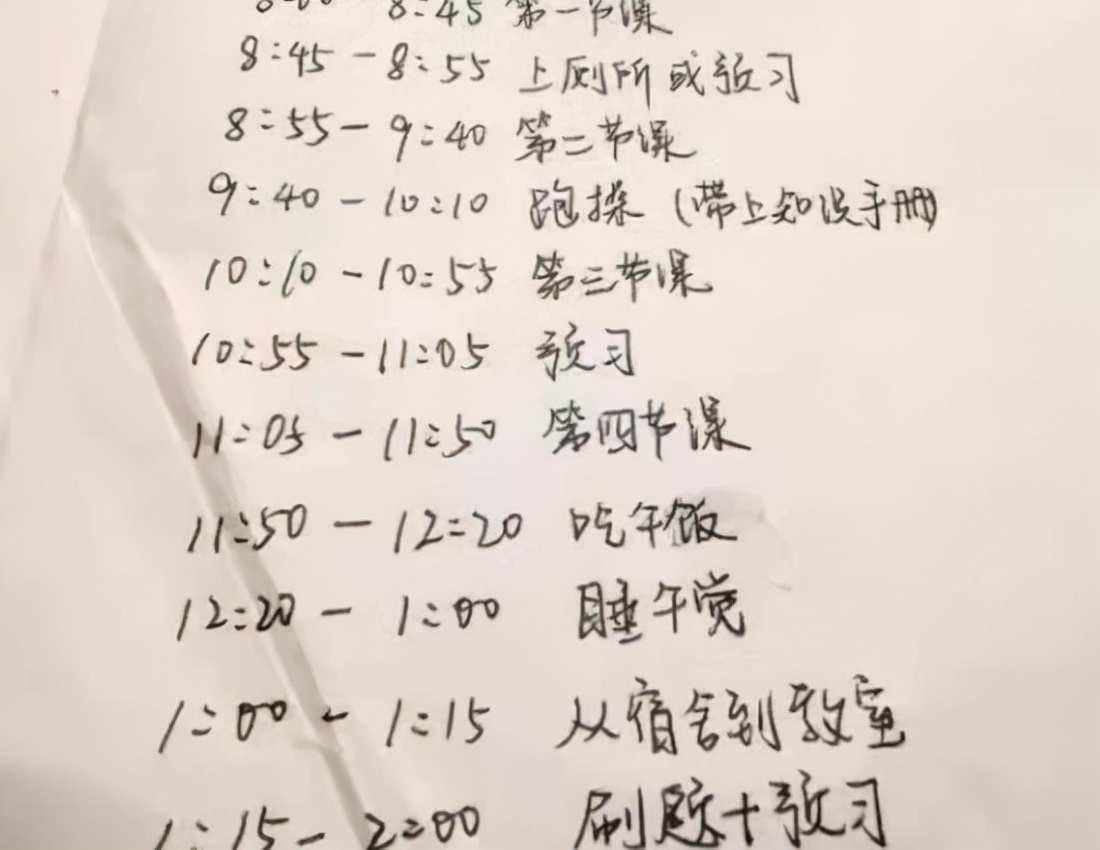 8:00 - 8:45 第一节课
8:45 - 8:55 上厕所或预习
8:55 - 9:40 第二节课
9:40 - 10:10 跑操 (带上知识手册)
10:10 - 10:55 第三节课
10:55 - 11:05 预习
11:05 - 11:50 第四节课
11:50 - 12:20 吃午饭
12:20 - 1:00 睡午觉
1:00 - 1:15 从宿舍到教室
1:15 - 2:00 刷题+预习